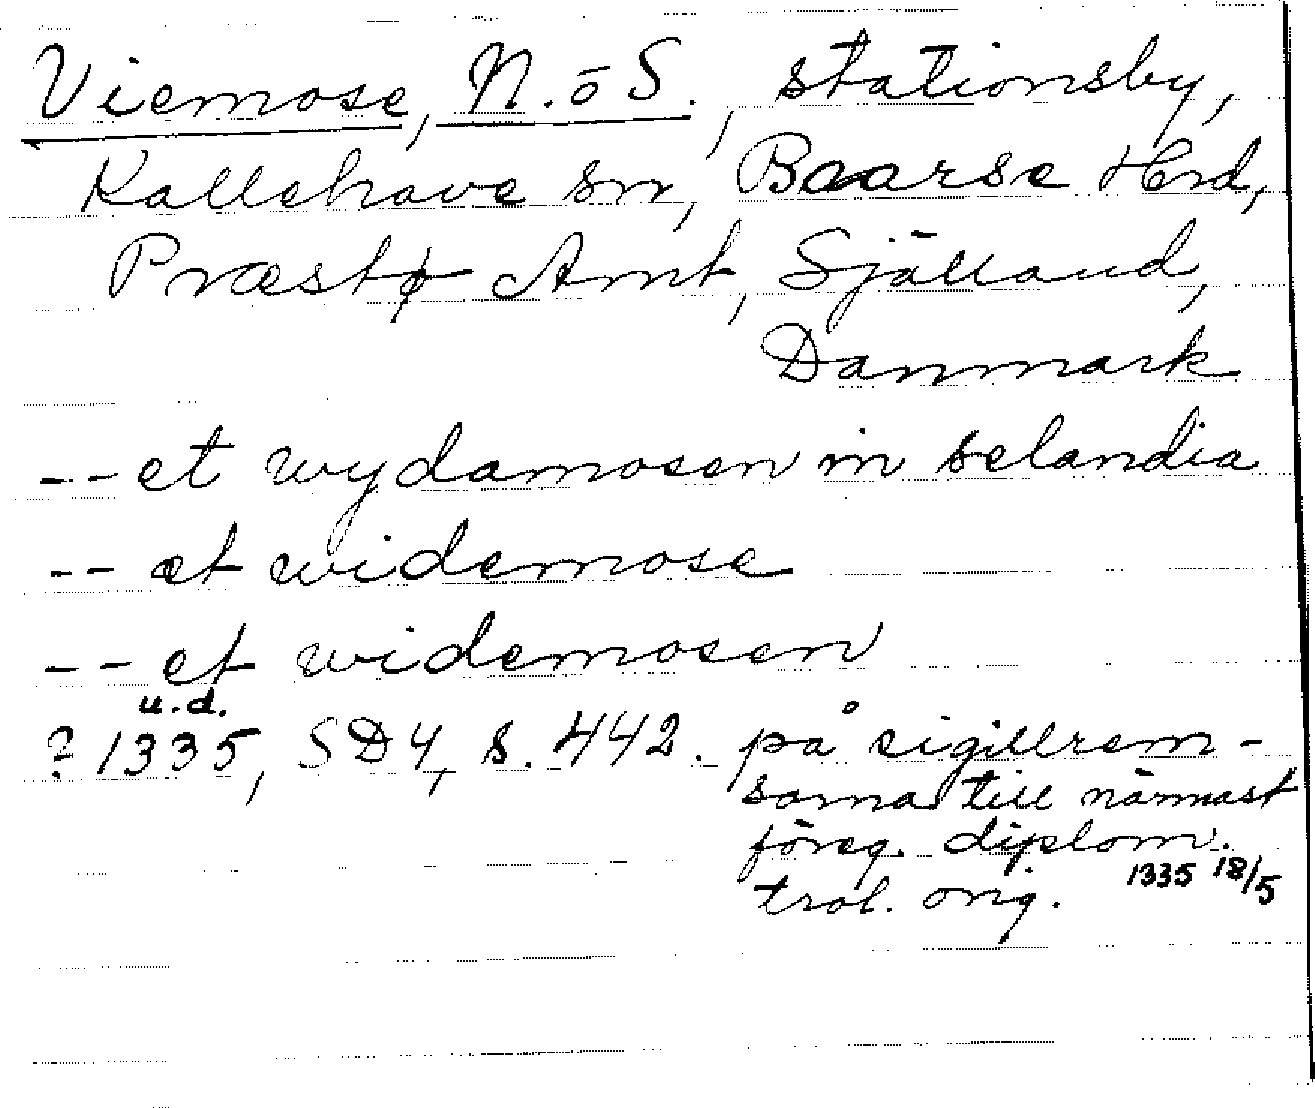 Viemose, N. ō S., stationsby,
Kallehave sn, Baarse Hrd,
Præstø Amt, Själland,
Danmark
-- et wydamosen in selandia
-- et widemose
-- et widemosen
u.d.
? 1335, SD4, s. 442. på sigillrem-
sorna till närmast
föreg. diplom.
trol. orig. 1335 18/5